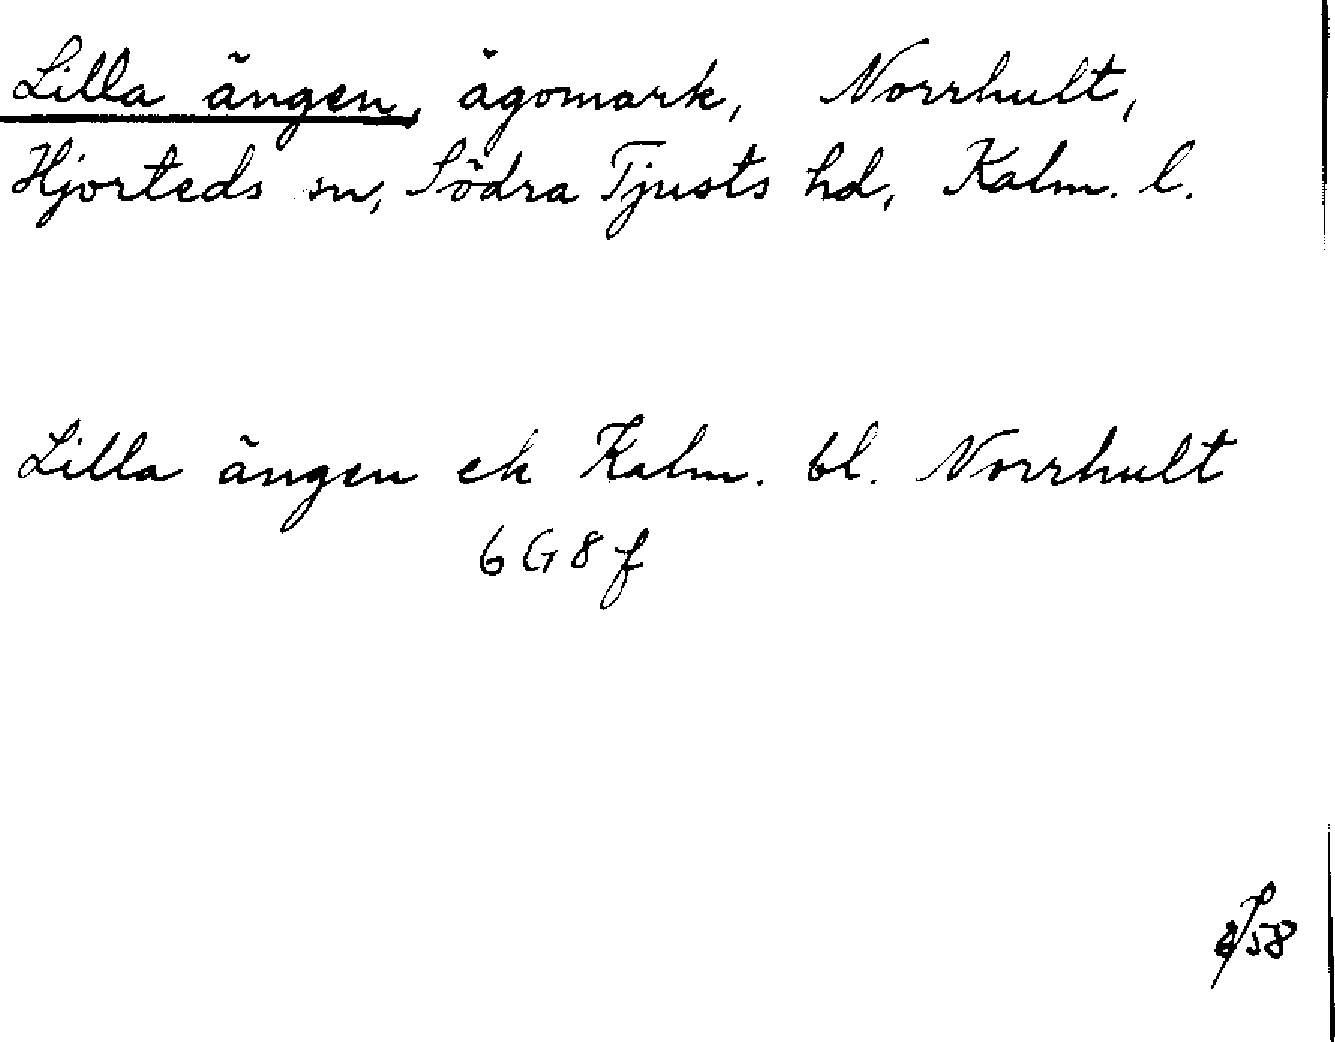 Lilla ängen, ägomark, Norrhult,
Hjorteds sn, Södra Tjusts hd, Kalm. l.
Lilla ängen ek Kalm. bl. Norrhult
6G8f
58